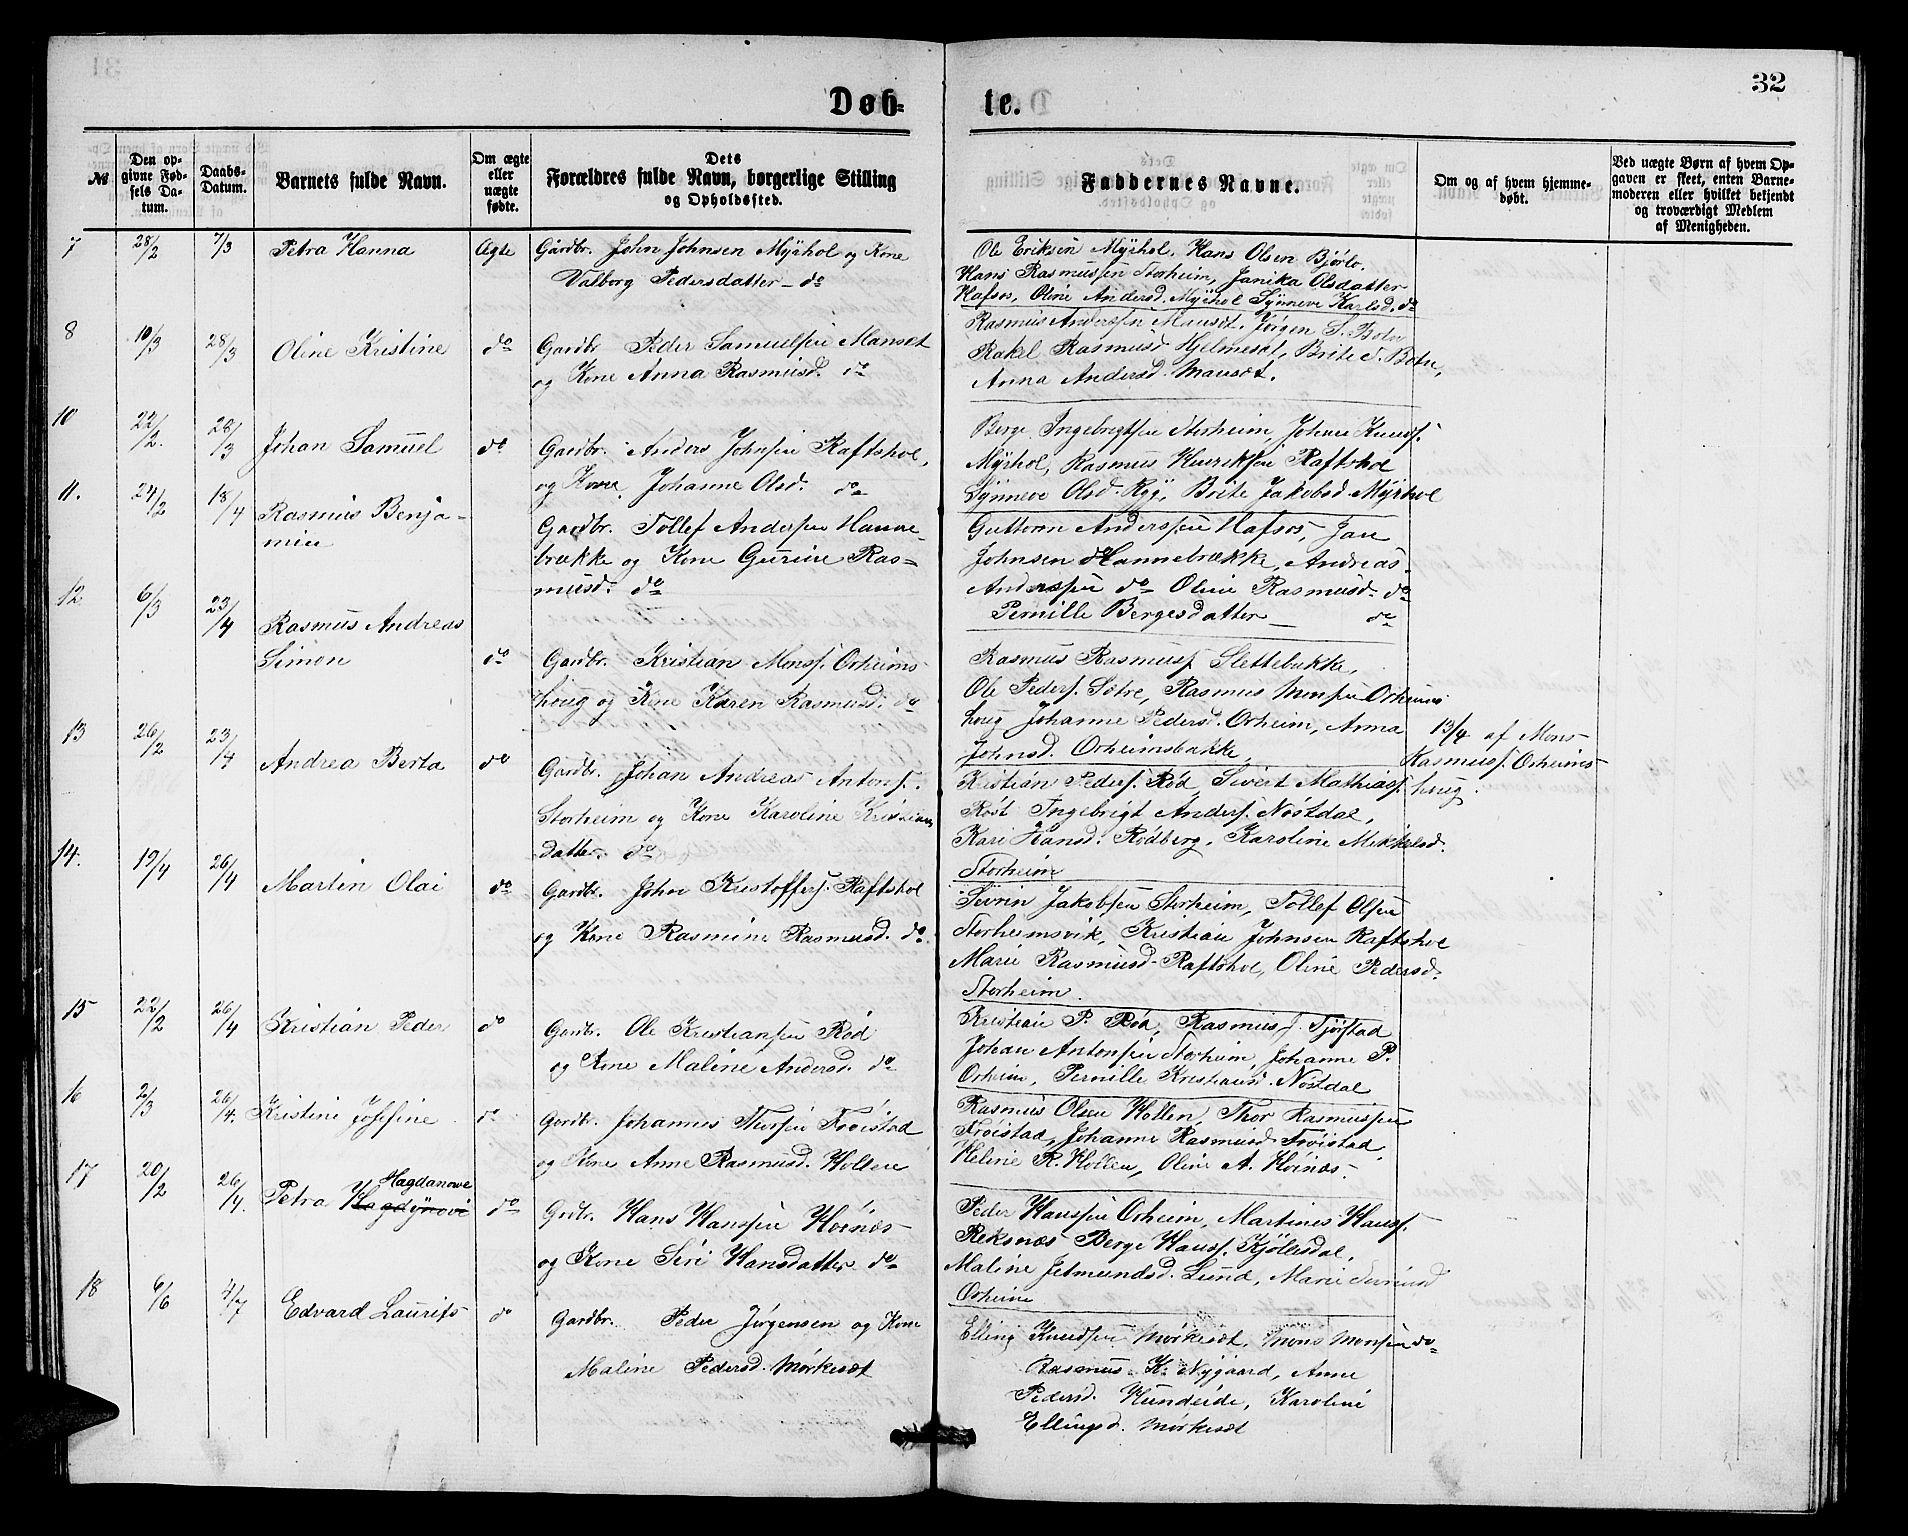 32
Døb-
te.
№
Den op-
givne Fød-
sels Da-
tum.
Daabs-
Datum.
Barnets fulde Navn.
Om ægte
eller
uægte
fødte.
Dets
Forældres fulde Navn, borgerlige Stilling
og Opholdssted.
Faddernes Navne.
Om og af hvem hjemme-
døbt.
Ved uægte Børn af hvem Op-
gaven er skeet, enten Barne-
moderen eller hvilket bekjendt
og troværdigt Medlem
af Menigheden.
7 28/2 7/3 Petra Hanna Ægte
Gardbr. John Johnsen Myrhol og Kone
Valborg Pedersdatter - do
Ole Eriksen Myrhol. Hans Olsen Bjørlo.
Hans Rasmussen Storheim, Janika Olsdatter
Hafsos, Oline Andersd. Myrhol Synneve Karlsd. do
8 10/3 28/3 Oline Kristine do
Gardbr Peder Samuelsen Mansæt
og Kone Anna Rasmusd. do
Rasmus Anderssen Mausæt. Jørgen S. Botn
Rakel Rasmusd Hjelmesæt, Brite S. Botn,
Anna Andersd. Mausæt.
10 22/2. 28/3 Johan Samuel do
Gardbr. Anders Johnsen Raftshol,
og Kone Johanne Olsd. do
Berge Ingebrigtsen Storheim, Johan Knuds.
Myrhol, Rasmus Henriksen Raftshol
Synneve Olsd. Ryg, Brite Jakobsd. Myrhol
11. 24/2 18/4 Rasmus Benja-
min
Gardbr. Tollef Andersen Hanne-
brække og Kone Gurine Ras-
musd. do
Guttorm Anderssen Hafsos, Jan
Johnsen Hannebrække, Andreas
Anderssen do Oline Rasmusd. do
Pernille Bergesdatter do
12 6/3 23/4 Rasmus Andreas
Simon do
Gardbr. Kristian Monss. Orheims-
houg og Kone Karen Rasmusd. do
Rasmus Rasmuss Slettebakke,
Ole Peders. Sætre, Rasmus Monsen Orheims-
houg Johanne Pedersd. Orheim, Anna
Johnsd. Orheimsbakke,
13/4 af Mons
Rasmuss. Orheims-
houg.
13 26/2 23/4 Andrea Berta do
Gardbr. Johan Andreas Antons.
Storheim og Kone Karoline Kristian
datter. do
Kristian Peders. Rød, Sivert Mathiass.
Røst Ingebrigt Anders. Nøstdal,
Kari Hansd. Rødberg, Karoline Mikkelsd.
Storheim
14. 19/4 26/4 Martin Olai do
Gardbr. John Kristoffers. Raftshol
og Kone Rasmine Rasmusd. do.
Sevrin Jakobsen Storheim, Tollef Olsen
Storheimsvik, Kristian Johnsen Raftshol
Marie Rasmusd. Raftshol, Oline Pedersd.
Storheim.
15 22/2 26/4 Kristian Peder do
Gardbr. Ole Kristiansen Rød
og Kone Maline Andersd. do
Kristian P. Rød, Rasmus J. Tjøstad
Johan Antonsen Storheim, Johanne P.
Orheim, Pernille Kristiansd. Nøstdal
16 2/3 26/4. Kristine Josefine do
Gardbr. Johannes Thorsen Frøistad
og Kone Anne Rasmusd. Holten
Rasmus Olsen Hollen, Thor Rasmussen
Frøistad, Johanne Rasmusd. Frøistad,
Heline R. Hollen, Oline A. Høinæs.
17 20/2 26/4. Petra Hagdanove
Hagdynove do
Grdbr. Hans Hanssen Høinæs
og Kone Siri Hansdatter do
Peder Hanssen Orheim, Martines Hanss.
Reksnæs Berge Hanss. Kjølesdal,
Maline Jetmundsd. Lund, Marie Sevrinsd
Orheim
18 6/6 4/7 Edvard Laurits do
Gardbr. Peder Jørgensen og Kone
Maline Pedersd. Mørkesæt
Elling Knudsen Mørkesæt, Mons Monsen do
Rasmus K. Nygaard, Anne
Pedersd. Hundeide, Karoline
Ellingsd. Mørkesæt